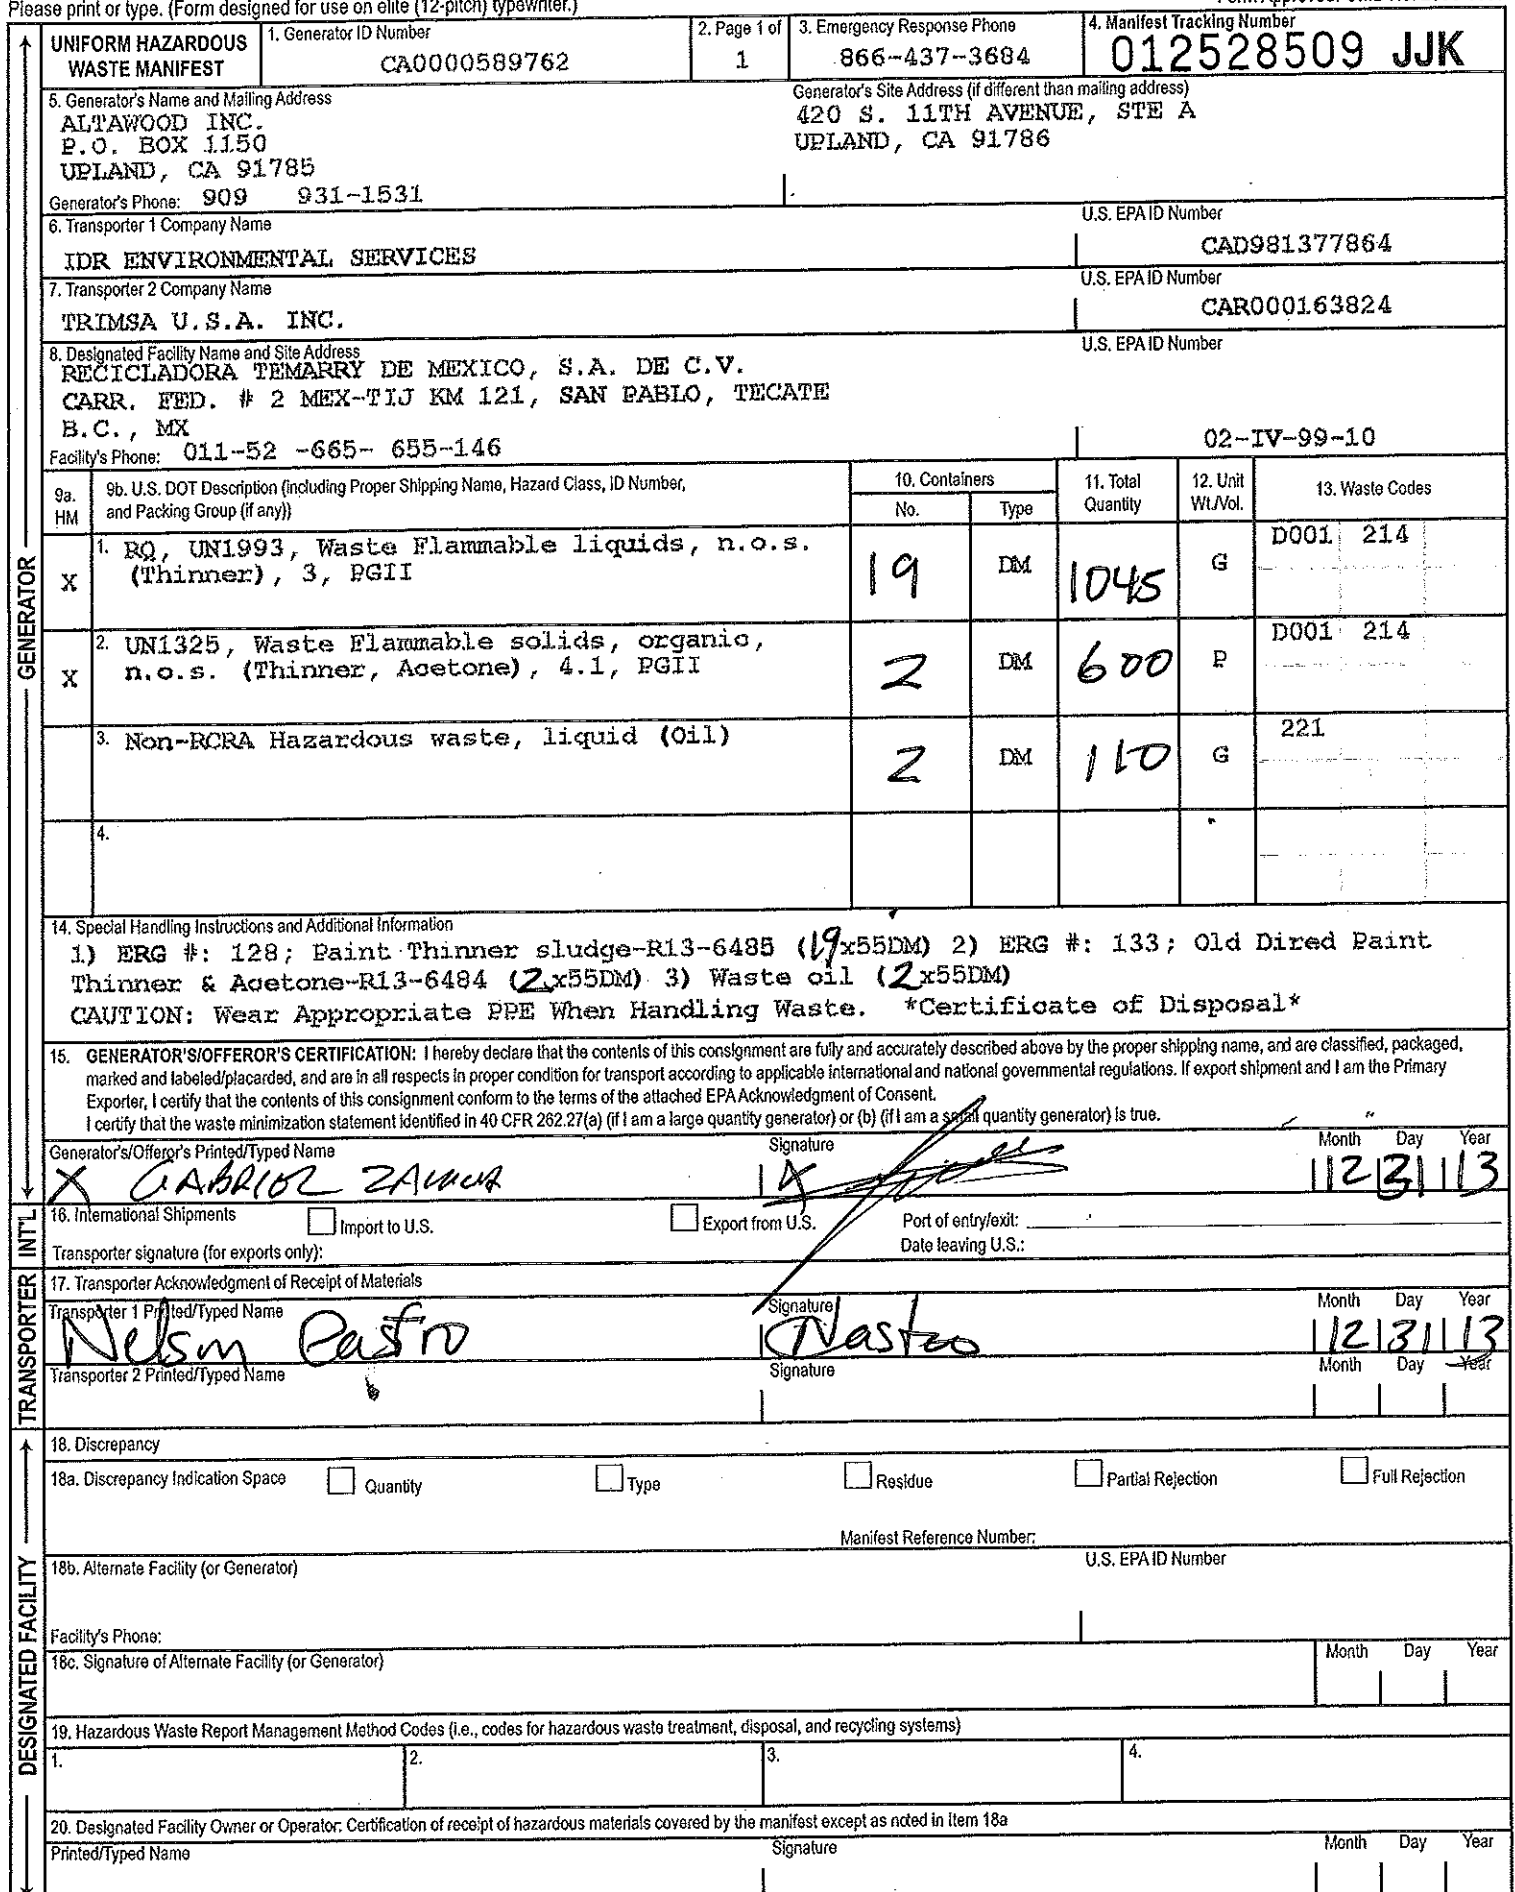 Please print or type. (Form designed for use on elite (12-pitch) typewriter.)
UNIFORM HAZARDOUS WASTE MANIFEST
1. Generator ID Number
CA0000589762
2. Page 1 of
1
3. Emergency Response Phone
866-437-3684
4. Manifest Tracking Number
012528509 JJK
5. Generator's Name and Mailing Address
ALTAWOOD INC.
P.O. BOX 1150
UPLAND, CA 91785
Generator's Phone: 909 931-1531
Generator's Site Address (if different than mailing address)
420 S. 11TH AVENUE, STE A
UPLAND, CA 91786
6. Transporter 1 Company Name
IDR ENVIRONMENTAL SERVICES
U.S. EPA ID Number
CAD981377864
7. Transporter 2 Company Name
TRIMSA U.S.A. INC.
U.S. EPA ID Number
CAR000163824
8. Designated Facility Name and Site Address
RECICLADORA TEMARRY DE MEXICO, S.A. DE C.V.
CARR. FED. # 2 MEX-TIJ KM 121, SAN PABLO, TECATE
B.C., MX
Facility's Phone: 011-52 -665- 655-146
U.S. EPA ID Number
02-IV-99-10
9a. HM
9b. U.S. DOT Description (including Proper Shipping Name, Hazard Class, ID Number,
and Packing Group (if any))
10. Containers
No.
Type
11. Total Quantity
12. Unit Wt./Vol.
13. Waste Codes
X
1. RQ, UN1993, Waste Flammable liquids, n.o.s.
(Thinner), 3, PGII
19 DM 1045 G D001 214
X
2. UN1325, Waste Flammable solids, organic,
n.o.s. (Thinner, Acetone), 4.1, PGII
2 DM 600 P D001 214
3. Non-RCRA Hazardous waste, liquid (Oil)
2 DM 110 G 221
4.
14. Special Handling Instructions and Additional Information
1) ERG #: 128; Paint Thinner sludge-R13-6485 (19x55DM) 2) ERG #: 133; Old Dired Paint
Thinner & Acetone-R13-6484 (2x55DM) 3) Waste oil (2x55DM)
CAUTION: Wear Appropriate PPE When Handling Waste. *Certificate of Disposal*
15. GENERATOR'S/OFFEROR'S CERTIFICATION: I hereby declare that the contents of this consignment are fully and accurately described above by the proper shipping name, and are classified, packaged,
marked and labeled/placarded, and are in all respects in proper condition for transport according to applicable international and national governmental regulations. If export shipment and I am the Primary
Exporter, I certify that the contents of this consignment conform to the terms of the attached EPA Acknowledgment of Consent.
I certify that the waste minimization statement identified in 40 CFR 262.27(a) (if I am a large quantity generator) or (b) (if I am a small quantity generator) is true.
Generator's/Offeror's Printed/Typed Name
Signature
Month Day Year
X GABRIEL
X
12 31 13
16. International Shipments
Import to U.S.
Export from U.S.
Port of entry/exit:
Transporter signature (for exports only):
Date leaving U.S.:
17. Transporter Acknowledgment of Receipt of Materials
Transporter 1 Printed/Typed Name
Signature
Month Day Year
Nelson Castro
NCastro
12 31 13
Transporter 2 Printed/Typed Name
Signature
Month Day Year
18. Discrepancy
18a. Discrepancy Indication Space
Quantity
Type
Residue
Partial Rejection
Full Rejection
Manifest Reference Number:
18b. Alternate Facility (or Generator)
U.S. EPA ID Number
Facility's Phone:
18c. Signature of Alternate Facility (or Generator)
Month Day Year
19. Hazardous Waste Report Management Method Codes (i.e., codes for hazardous waste treatment, disposal, and recycling systems)
1.
2.
3.
4.
20. Designated Facility Owner or Operator: Certification of receipt of hazardous materials covered by the manifest except as noted in Item 18a
Printed/Typed Name
Signature
Month Day Year
GENERATOR
INT'L
TRANSPORTER
DESIGNATED FACILITY